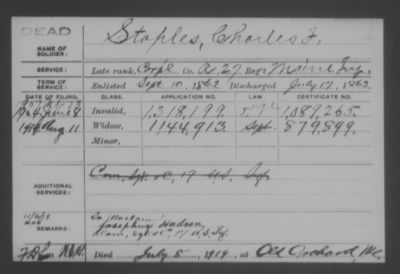 DEAD
NAME OF SOLDIER: Staples, Charles F.
SERVICE: Late rank, Corp'l Co. A. 27 Reg't Maine Inf.
TERM OF SERVICE: Enlisted Sept. 10, 1862 Discharged July 17, 1863.
DATE OF FILING. CLASS. APPLICATION NO. LAW. CERTIFICATE NO.
Invalid, 1,318,199. 1,089,265.
1914 Aug 11 Widow, 1144,913. Sept. 879,899.
Minor,
ADDITIONAL SERVICES: Com. Sgt. 17 U.S. Inf
REMARKS:
Josephus Hudson,
17 U.S. Inf.
Died July 5, 1914 at Old Orchard, Me.